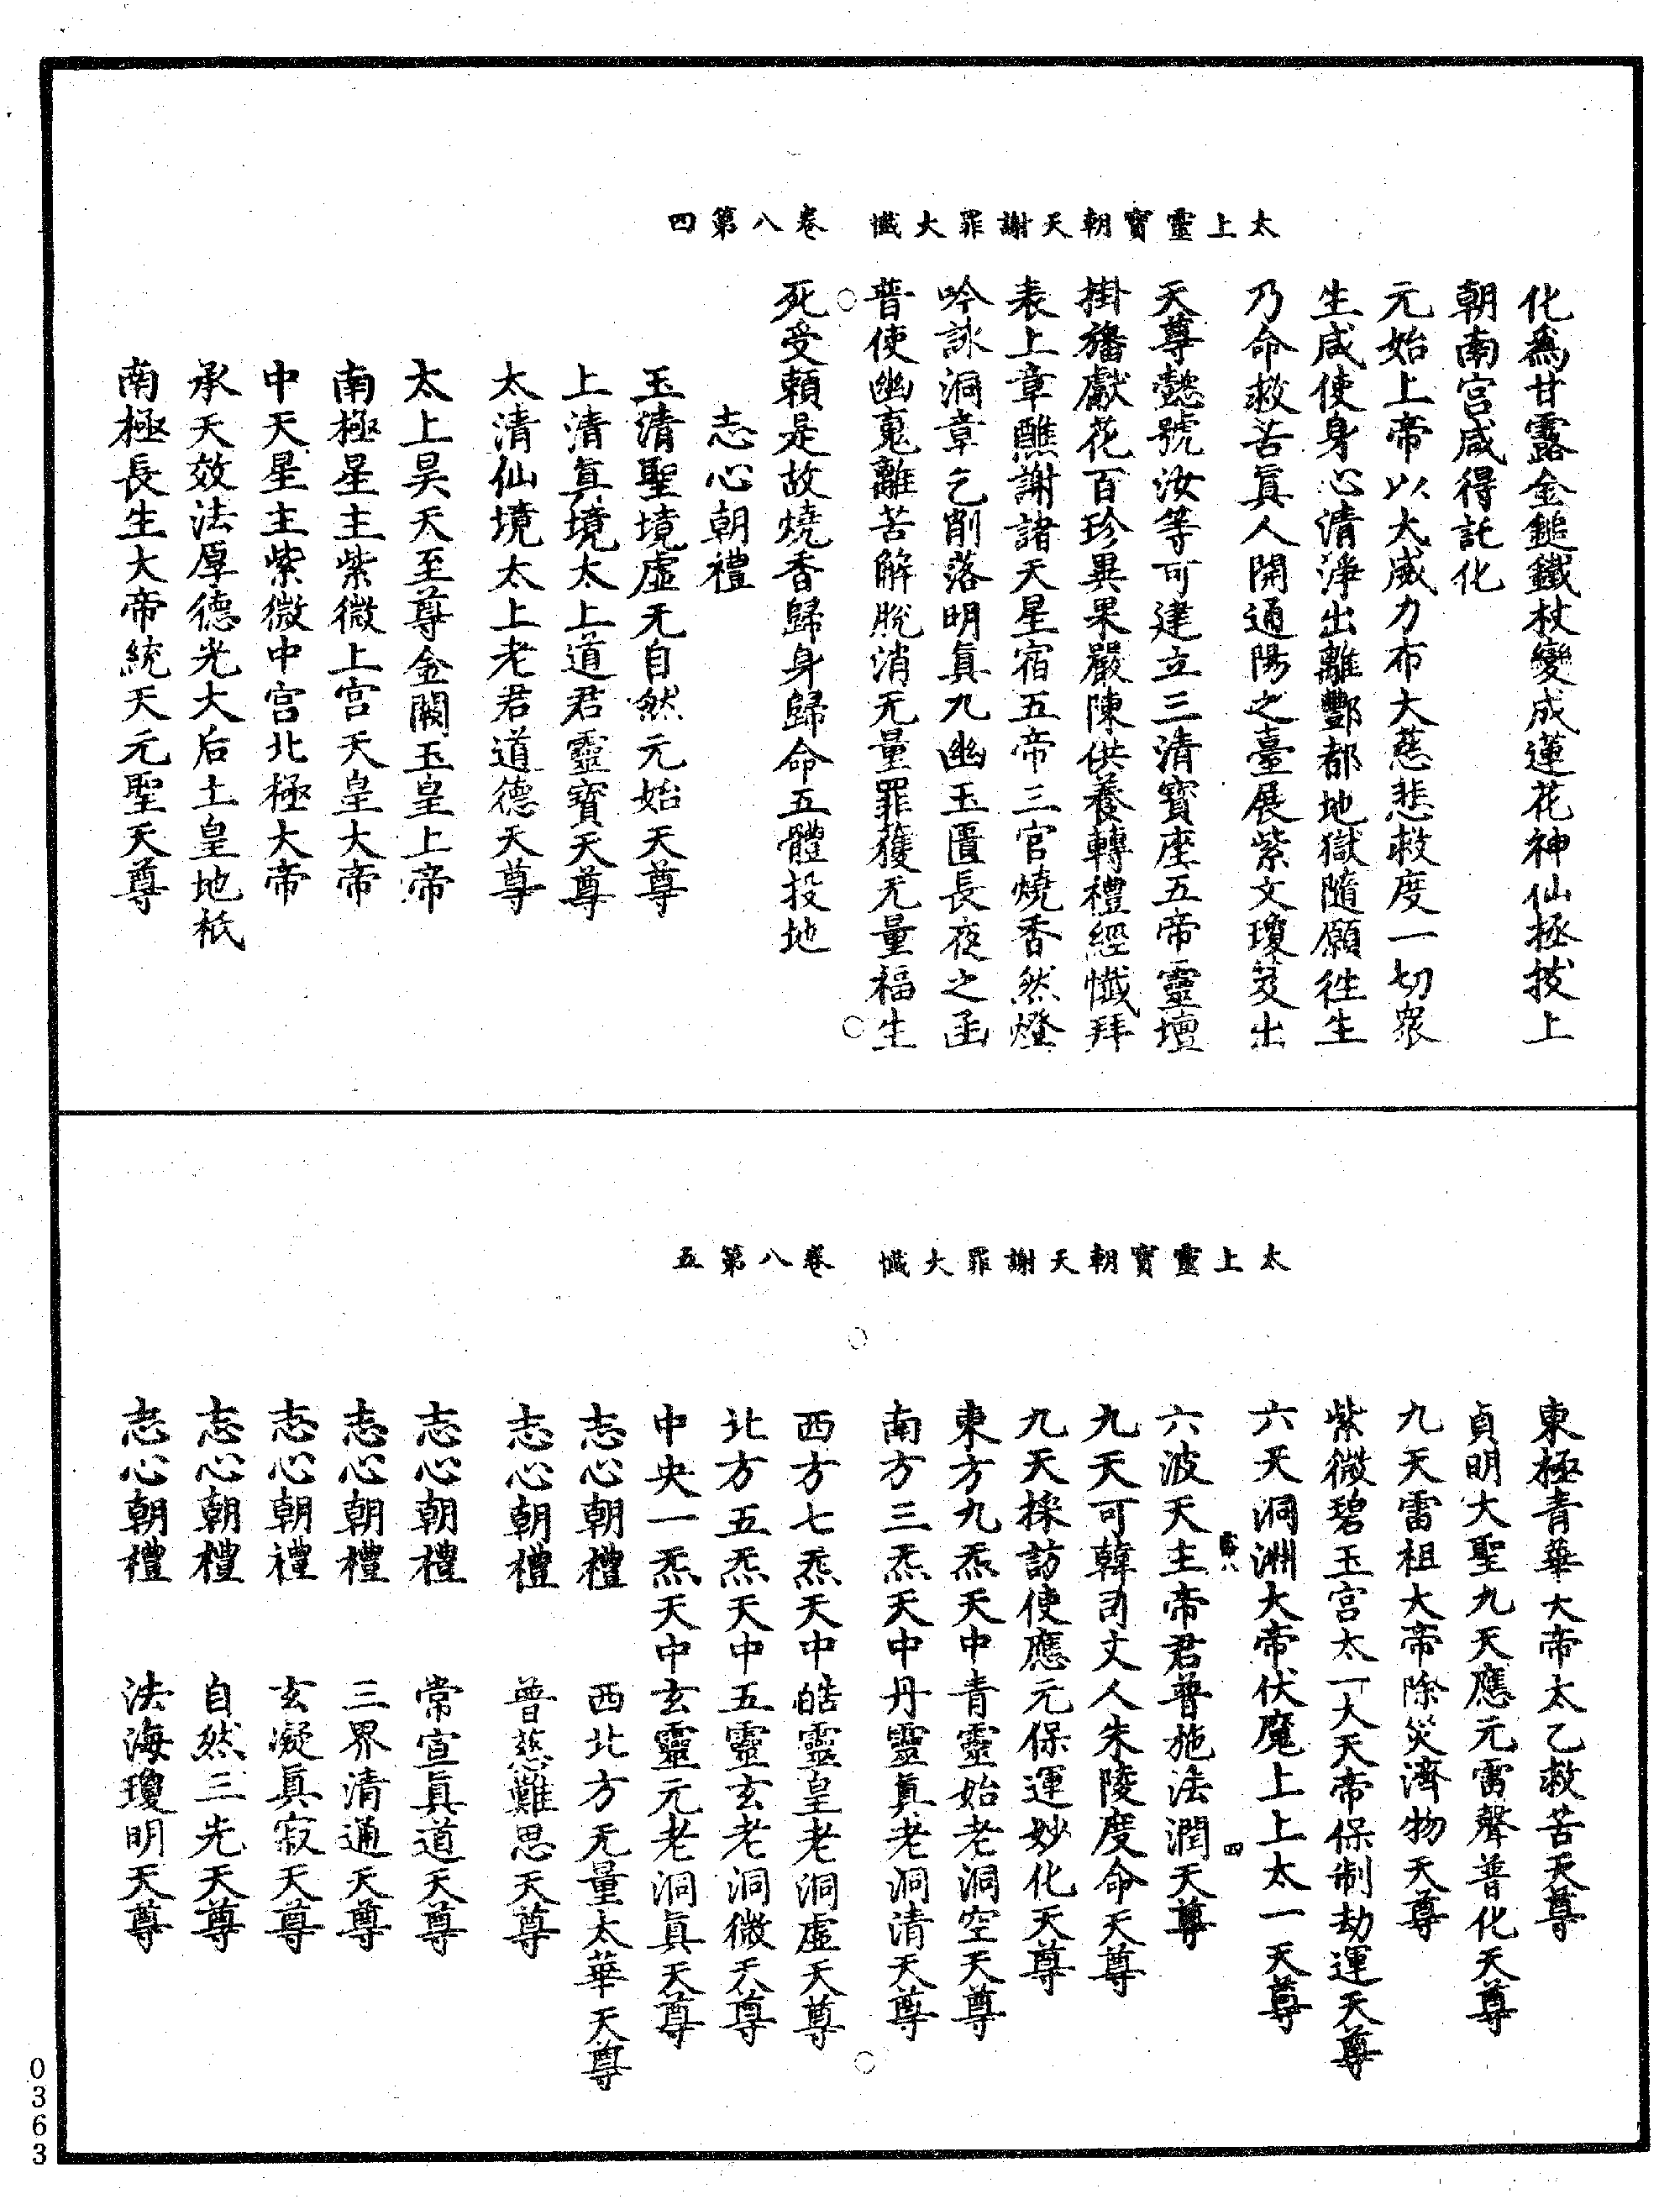 太上靈寶朝天謝罪大懺　卷八第四
化爲甘露金鎚鐵杖變成蓮花神仙拯拔上
朝南宫咸得託化
元始上帝以大威力布大慈悲救度一切衆
生咸使身心清淨出離酆都地獄隨願往生
乃命救苦眞人開通陽之臺展紫文瓊笈出
天尊懿號汝等可建立三清寳座五帝靈壇
掛旛獻花百珍異果嚴陳供養轉禮經懺拜
表上章醮謝諸天星宿五帝三官燒香然燈
吟詠洞章乞削落明眞九幽玉匱長夜之函
普使幽䰟離苦解脫消无量罪獲无量福生
死受賴是故燒香歸身歸命五體投地
志心朝禮
玉清聖境虛无自然元始天尊
上清眞境太上道君靈寳天尊
太清仙境太上老君道德天尊
太上昊天至尊金闕玉皇上帝
南極星主紫微上宫天皇大帝
中天星主紫微中宫北極大帝
承天效法厚德光大后土皇地祇
南極長生大帝統天元聖天尊
太上靈寶朝天謝罪大懺　卷八第五
東極青華大帝太乙救苦天尊
貞明大聖九天應元雷聲普化天尊
九天雷祖大帝除災濟物天尊
紫微碧玉宫太一大天帝保制劫運天尊
六天洞淵大帝伏魔上上太一天尊
四
六波天主帝君普施法潤天尊
九天可韓司丈人朱陵度命天尊
九天採訪使應元保運妙化天尊
東方九炁天中青靈始老洞空天尊
南方三炁天中丹靈眞老洞清天尊
西方七炁天中皓靈皇老洞虛天尊
北方五炁天中五靈玄老洞微天尊
中央一炁天中玄靈元老洞眞天尊
志心朝禮　西北方无量太華天尊
志心朝禮　普慈難思天尊
志心朝禮　常宣眞道天尊
志心朝禮　三界清通天尊
志心朝禮　玄凝眞寂天尊
志心朝禮　自然三光天尊
志心朝禮　法海瓊明天尊
0363